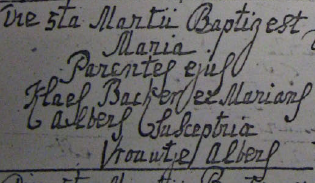 Die 5ta Martii Baptiz est
Maria
Parentes ejus
Klaes Backer et Marians
Albers Susceptria
Vrouwtje Albers